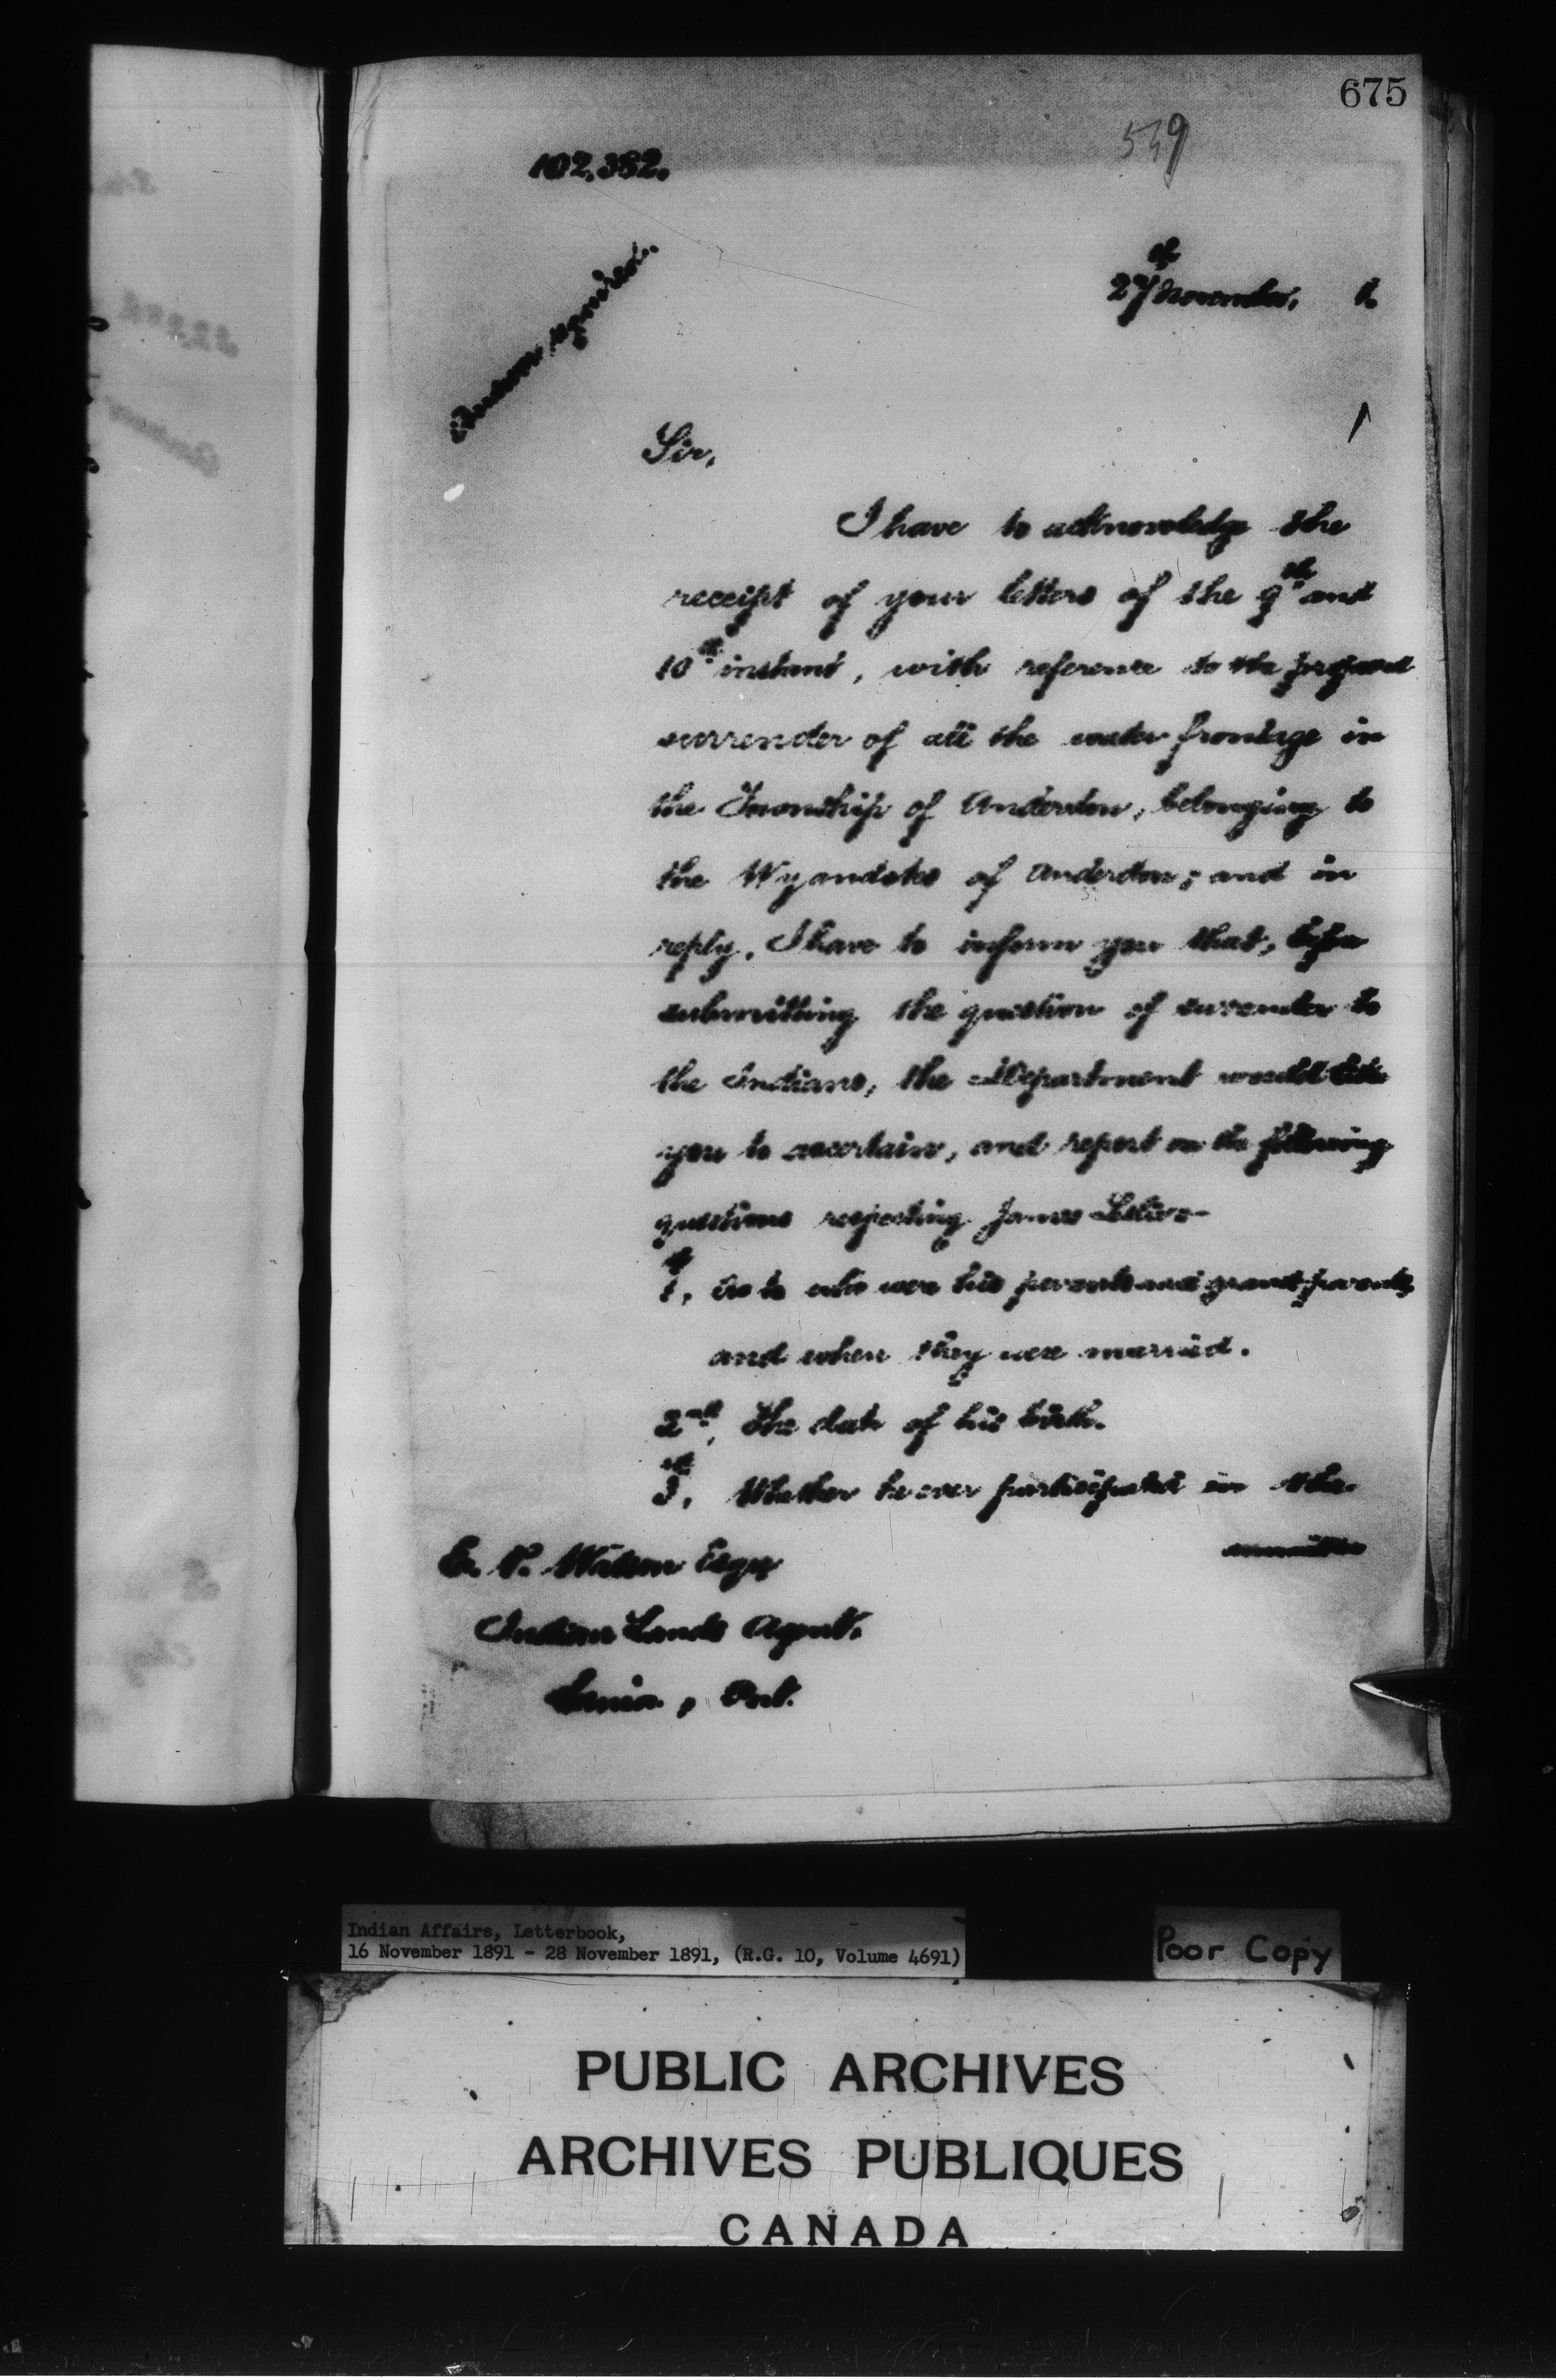 675
519
102,382.
Answer required.
27th November, 1.
Sir,
I have to acknowledge the
receipt of your letters of the 9th and
10th instant, with reference to the proposed
surrender of all the water frontage in
the Township of Anderdon, belonging to
the Wyandotts of Anderdon; and in
reply, I have to inform you that, before
submitting the question of surrender to
the Indians, the Department would like
you to ascertain, and report on the following
questions respecting James
1st, As to who were his parents and grand-parents,
and when they were married.
2nd, The date of his birth.
3rd, Whether he ever participated in the
annuities
E. Watson Esqr
Indian Lands Agent,
Sarnia, Ont.
Indian Affairs, Letterbook,
16 November 1891 - 28 November 1891, (R.G. 10, Volume 4691)
Poor Copy
PUBLIC ARCHIVES
ARCHIVES PUBLIQUES
CANADA